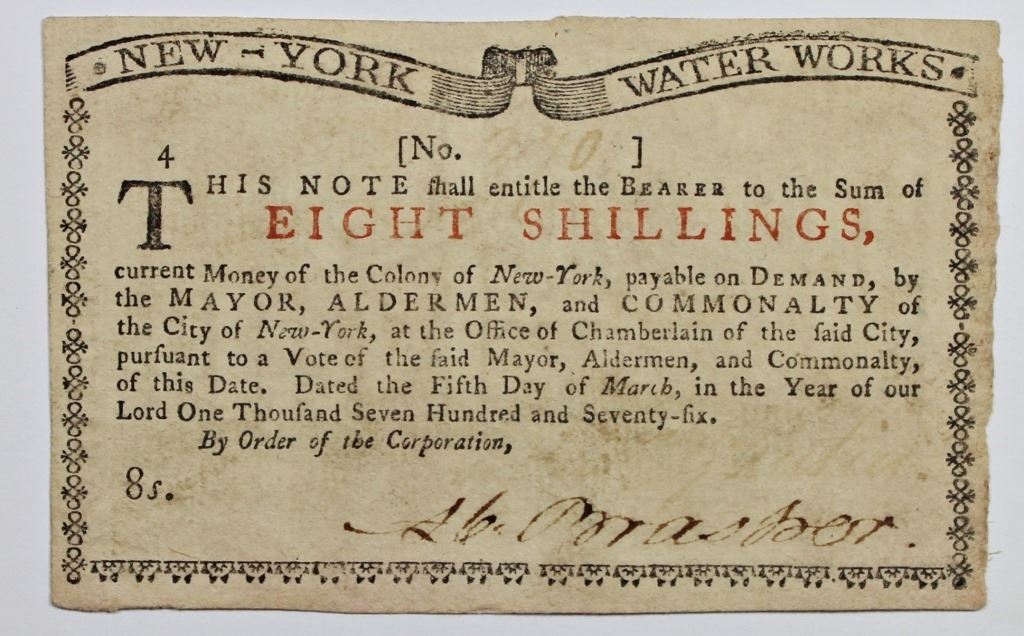 NEW-YORK WATER WORKS
4 [No. ]
THIS NOTE ſhall entitle the BEARER to the Sum of
EIGHT SHILLINGS,
current Money of the Colony of New-York, payable on DEMAND, by
the MAYOR, ALDERMEN, and COMMONALTY of
the City of New-York, at the Office of Chamberlain of the ſaid City,
purſuant to a Vote of the ſaid Mayor, Aldermen, and Commonalty,
of this Date. Dated the Fifth Day of March, in the Year of our
Lord One Thouſand Seven Hundred and Seventy-ſix.
By Order of the Corporation,
8s.
Ab. Brasher.